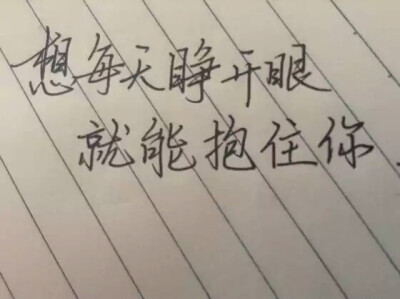 想每天睁开眼
就能抱住你